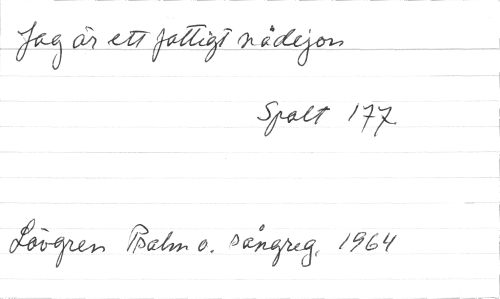 Jag är ett fattigt nådejon
Spalt 177
Lövgren Psalm o. sångreg. 1964